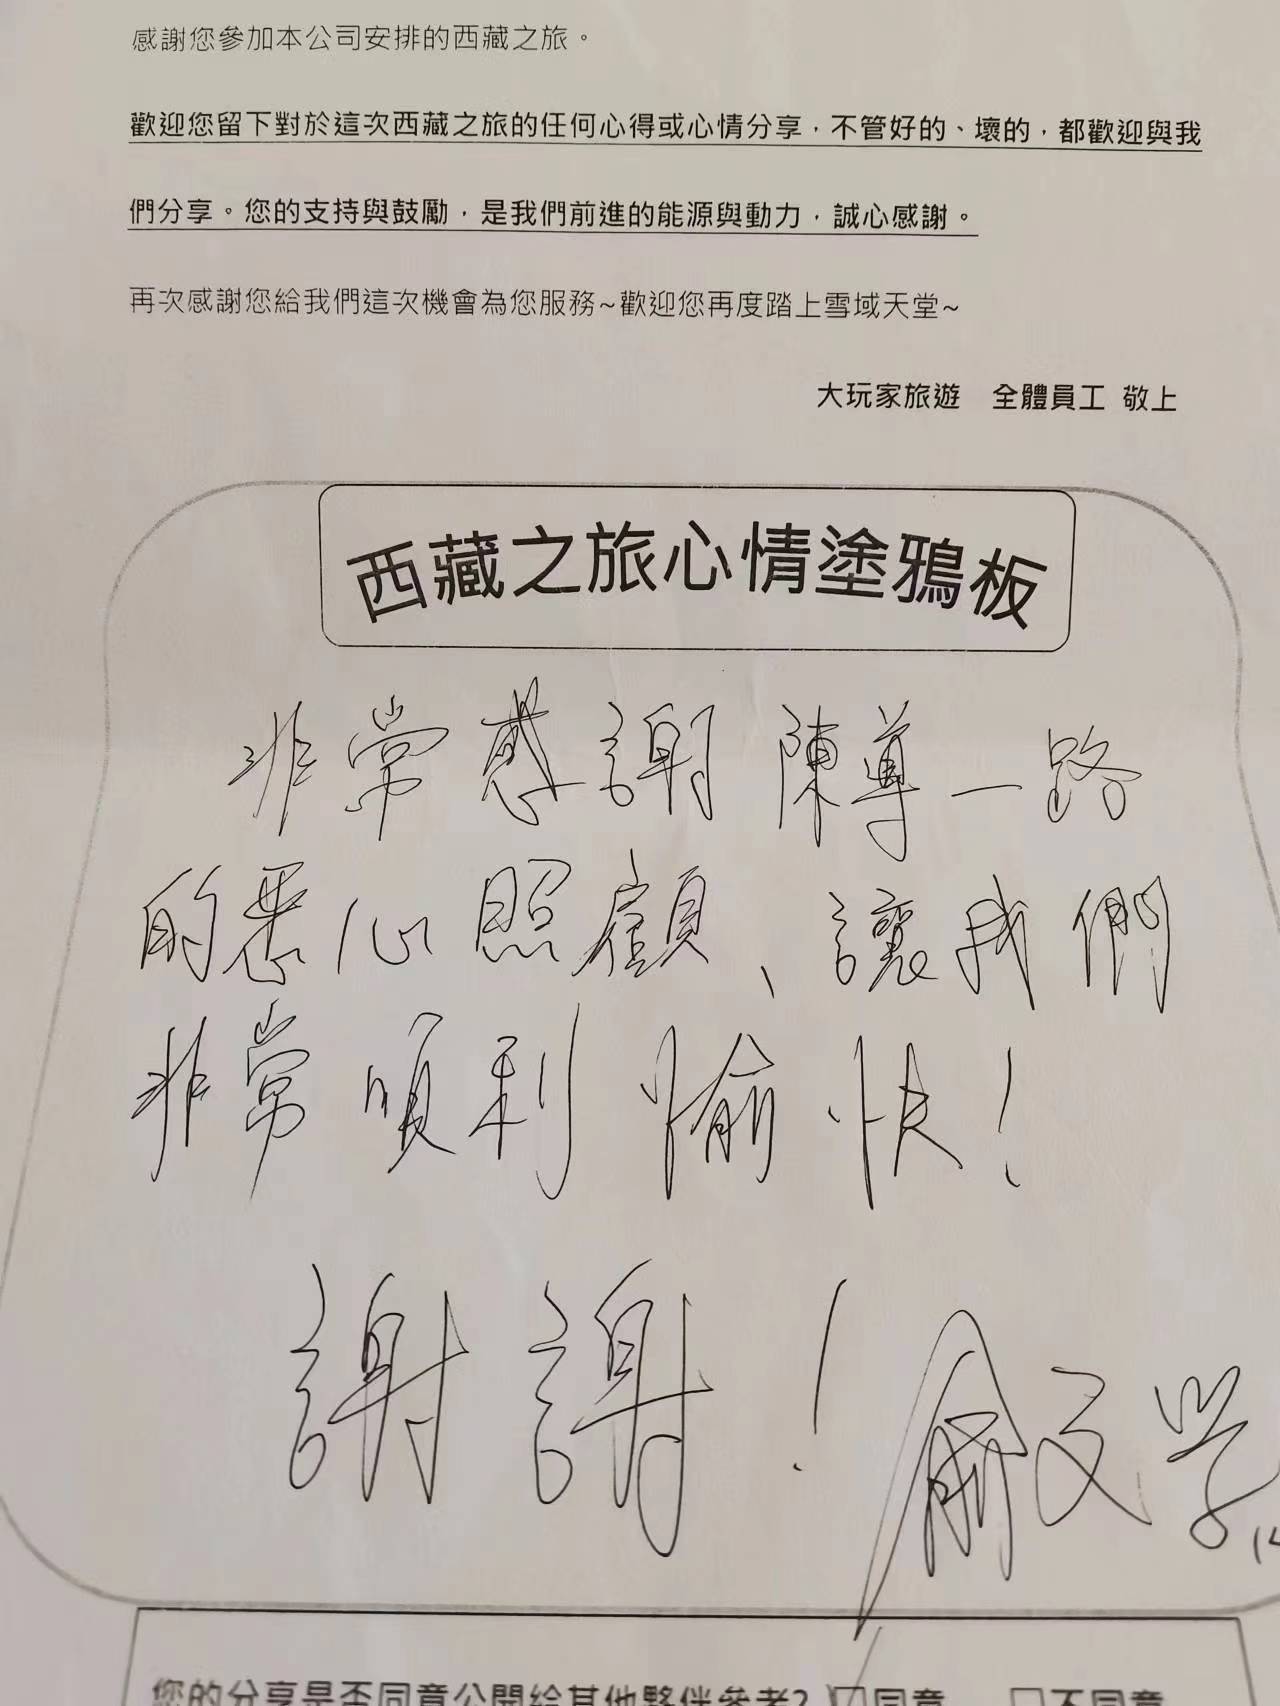 感謝您參加本公司安排的西藏之旅。
歡迎您留下對於這次西藏之旅的任何心得或心情分享，不管好的、壞的，都歡迎與我
們分享。您的支持與鼓勵，是我們前進的能源與動力，誠心感謝。
再次感謝您給我們這次機會為您服務~歡迎您再度踏上雪域天堂~
大玩家旅遊 全體員工 敬上
西藏之旅心情塗鴉板
非常感謝陳導一路
的悉心照顧、讓我們
非常順利愉快！
謝謝！俞文学
您的分享是否同意公開給其他夥伴參考? ☑同意 □不同意